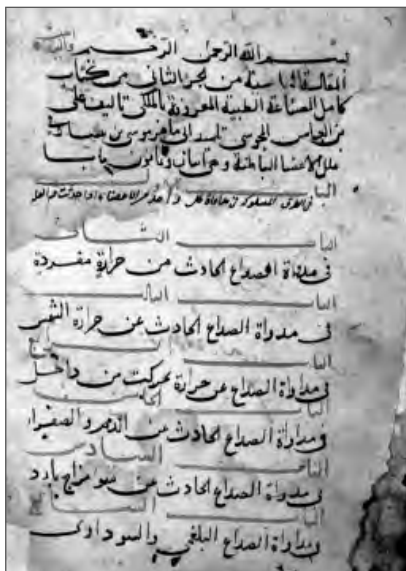 بسم الله الرحمن الرحيم
المقالة الخامسة من الجزء الثاني من كتاب
كامل الصناعة الطبية المعروف بالملكي تاليف علي
بن العباس المجوسي تلميذ ابي ماهر موسى بن سيار في
علل الاعضا الباطنة وهي اثنان وثمانون بابا
الباب
الباب الثاني
في مداواة الصداع الحادث من حرارة مفردة
الباب الثالث
في مداواة الصداع الحادث عن حرارة الشمس
الباب الرابع
في مداواة الصداع عن حرارة تحركت من داخل
الباب الخامس
في مداواة الصداع الحادث عن الدم والصفراء
الباب السادس
في مداواة الصداع الحادث عن سو مزاج بارد
الباب
في مداواة الصداع البلغمي والسوداوي